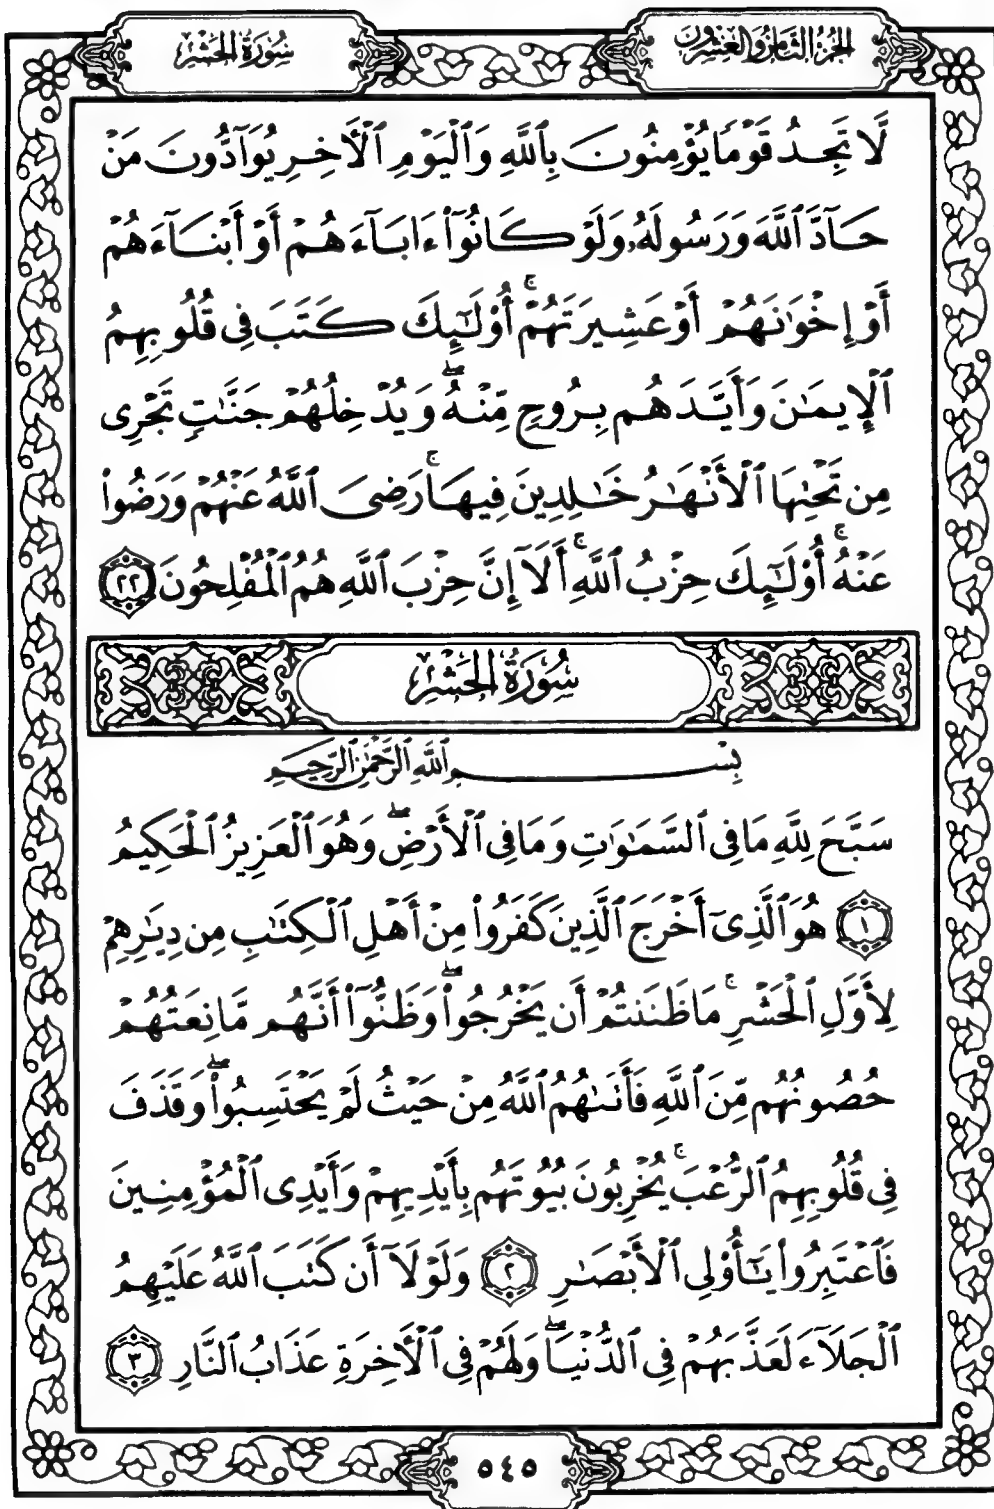 الجزء الثامن والعشرون
سورة الحشر
لَّا تَجِدُ قَوْمًا يُؤْمِنُونَ بِٱللَّهِ وَٱلْيَوْمِ ٱلْأَخِرِ يُوَآدُّونَ مَنْ
حَآدَّ ٱللَّهَ وَرَسُولَهُۥ وَلَوْ كَانُوٓا۟ ءَابَآءَهُمْ أَوْ أَبْنَآءَهُمْ
أَوْ إِخْوَٰنَهُمْ أَوْ عَشِيرَتَهُمْ ۚ أُو۟لَـٰٓئِكَ كَتَبَ فِى قُلُوبِهِمُ
ٱلْإِيمَـٰنَ وَأَيَّدَهُم بِرُوحٍ مِّنْهُ ۖ وَيُدْخِلُهُمْ جَنَّـٰتٍ تَجْرِى
مِن تَحْتِهَا ٱلْأَنْهَـٰرُ خَـٰلِدِينَ فِيهَا ۚ رَضِىَ ٱللَّهُ عَنْهُمْ وَرَضُوا۟
عَنْهُ ۚ أُو۟لَـٰٓئِكَ حِزْبُ ٱللَّهِ ۚ أَلَآ إِنَّ حِزْبَ ٱللَّهِ هُمُ ٱلْمُفْلِحُونَ ٢٢
سُورَةُ الحَشْرِ
بِسْمِ ٱللَّهِ ٱلرَّحْمَـٰنِ ٱلرَّحِيمِ
سَبَّحَ لِلَّهِ مَا فِى ٱلسَّمَـٰوَٰتِ وَمَا فِى ٱلْأَرْضِ ۖ وَهُوَ ٱلْعَزِيزُ ٱلْحَكِيمُ
١ هُوَ ٱلَّذِىٓ أَخْرَجَ ٱلَّذِينَ كَفَرُوا۟ مِنْ أَهْلِ ٱلْكِتَـٰبِ مِن دِيَـٰرِهِمْ
لِأَوَّلِ ٱلْحَشْرِ ۚ مَا ظَنَنتُمْ أَن يَخْرُجُوا۟ ۖ وَظَنُّوٓا۟ أَنَّهُم مَّانِعَتُهُمْ
حُصُونُهُم مِّنَ ٱللَّهِ فَأَتَىٰهُمُ ٱللَّهُ مِنْ حَيْثُ لَمْ يَحْتَسِبُوا۟ ۖ وَقَذَفَ
فِى قُلُوبِهِمُ ٱلرُّعْبَ ۚ يُخْرِبُونَ بُيُوتَهُم بِأَيْدِيهِمْ وَأَيْدِى ٱلْمُؤْمِنِينَ
فَٱعْتَبِرُوا۟ يَـٰٓأُو۟لِى ٱلْأَبْصَـٰرِ ٢ وَلَوْلَآ أَن كَتَبَ ٱللَّهُ عَلَيْهِمُ
ٱلْجَلَآءَ لَعَذَّبَهُمْ فِى ٱلدُّنْيَا ۖ وَلَهُمْ فِى ٱلْأَخِرَةِ عَذَابُ ٱلنَّارِ ٣
٥٤٥